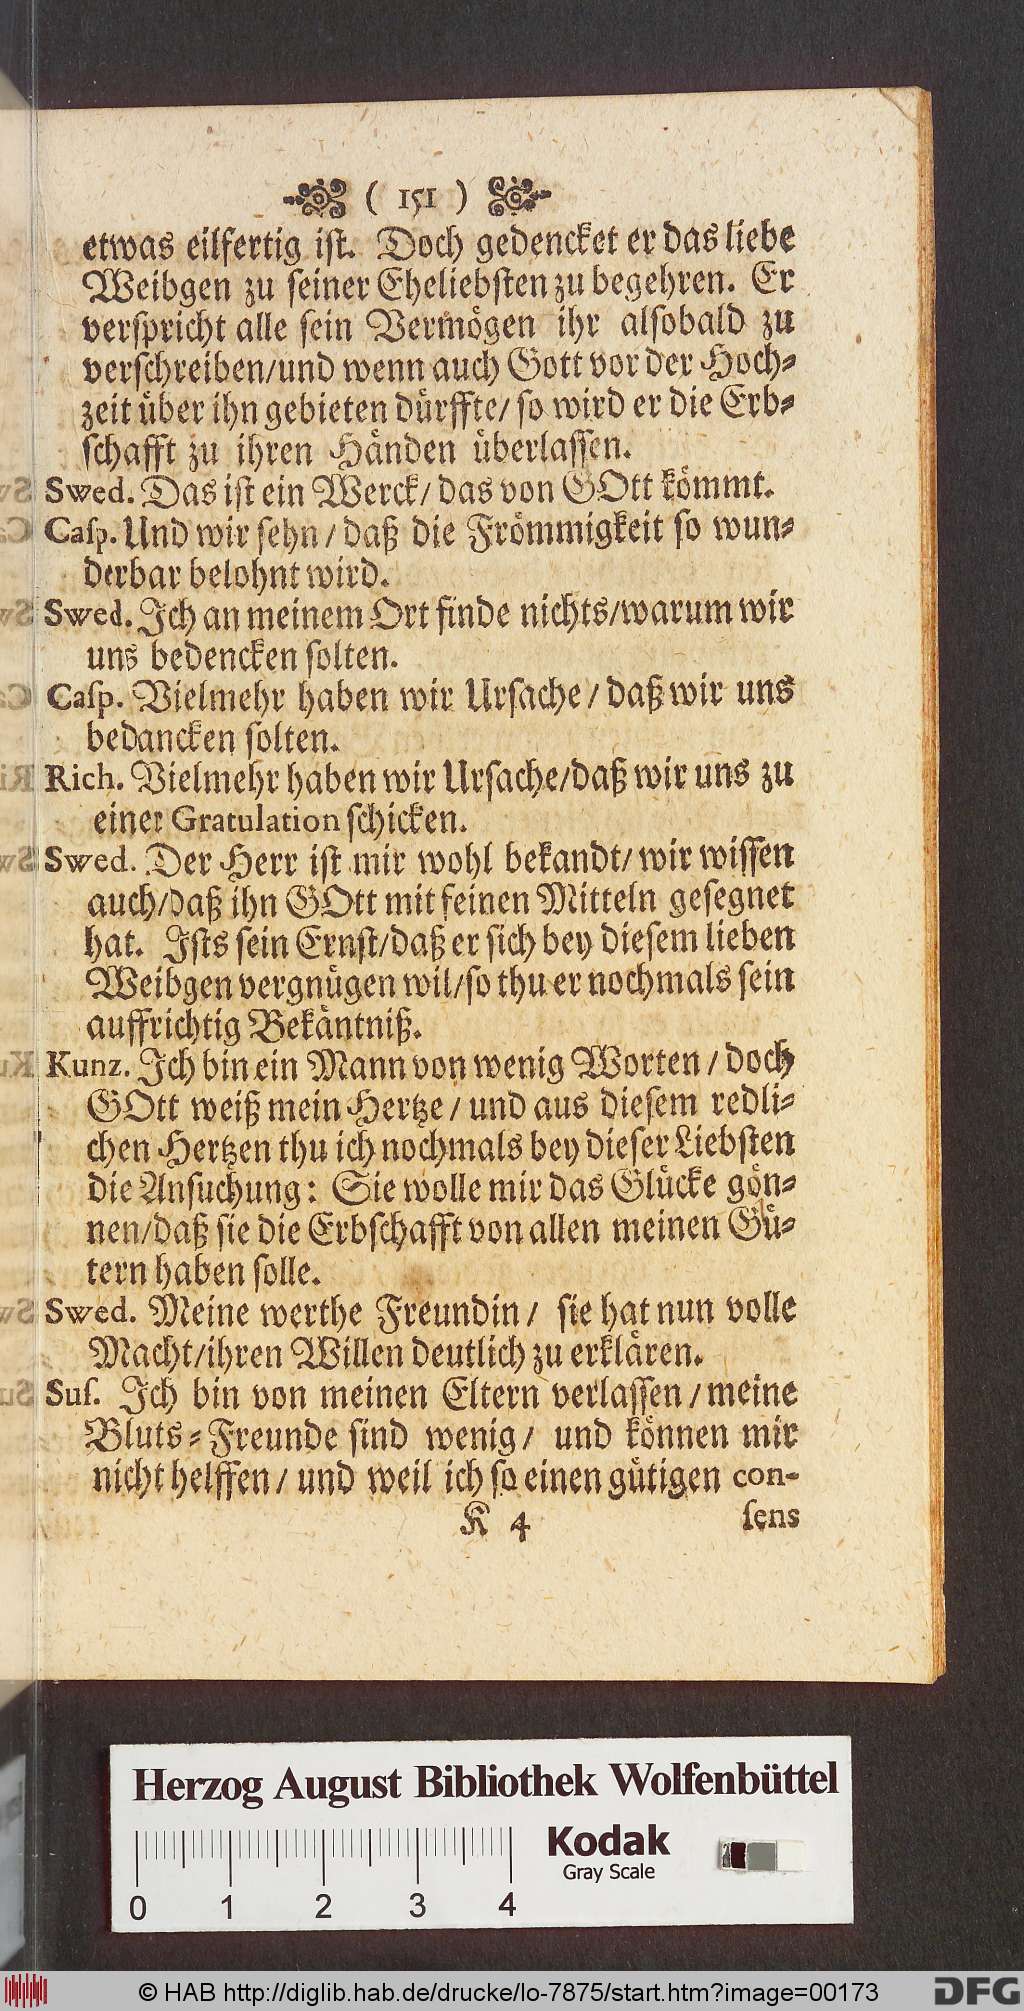 ( 151 )
etwas eilfertig iſt. Doch gedencket er das liebe
Weibgen zu ſeiner Eheliebſten zu begehren. Er
verſpricht alle ſein Vermoͤgen ihr alſobald zu
verſchreiben/und wenn auch Gott vor der Hoch⸗
zeit uͤber ihn gebieten duͤrffte/ ſo wird er die Erb⸗
ſchafft zu ihren Haͤnden uͤberlaſſen.
Swed. Das iſt ein Werck/ das von GOtt koͤmmt.
Caſp. Und wir ſehn / daß die Froͤmmigkeit ſo wun⸗
derbar belohnt wird.
Swed. Ich an meinem Ort finde nichts/warum wir
uns bedencken ſolten.
Caſp. Vielmehr haben wir Urſache / daß wir uns
bedancken ſolten.
Rich. Vielmehr haben wir Urſache/daß wir uns zu
einer Gratulation ſchicken.
Swed. Der Herr iſt mir wohl bekandt/ wir wiſſen
auch/daß ihn GOtt mit feinen Mitteln geſegnet
hat. Iſts ſein Ernſt/daß er ſich bey dieſem lieben
Weibgen vergnuͤgen wil/ſo thu er nochmals ſein
auffrichtig Bekaͤntniß.
Kunz. Ich bin ein Mann von wenig Worten / doch
GOtt weiß mein Hertze / und aus dieſem redli⸗
chen Hertzen thu ich nochmals bey dieſer Liebſten
die Anſuchung: Sie wolle mir das Gluͤcke goͤn⸗
nen/daß ſie die Erbſchafft von allen meinen Guͤ⸗
tern haben ſolle.
Swed. Meine werthe Freundin / ſie hat nun volle
Macht/ihren Willen deutlich zu erklaͤren.
Suſ. Ich bin von meinen Eltern verlaſſen / meine
Bluts⸗Freunde ſind wenig / und koͤnnen mir
nicht helffen / und weil ich ſo einen guͤtigen con-
K 4 ſens
Herzog August Bibliothek Wolfenbüttel
Kodak
Gray Scale
0 1 2 3 4
© HAB http://diglib.hab.de/drucke/lo-7875/start.htm?image=00173
DFG